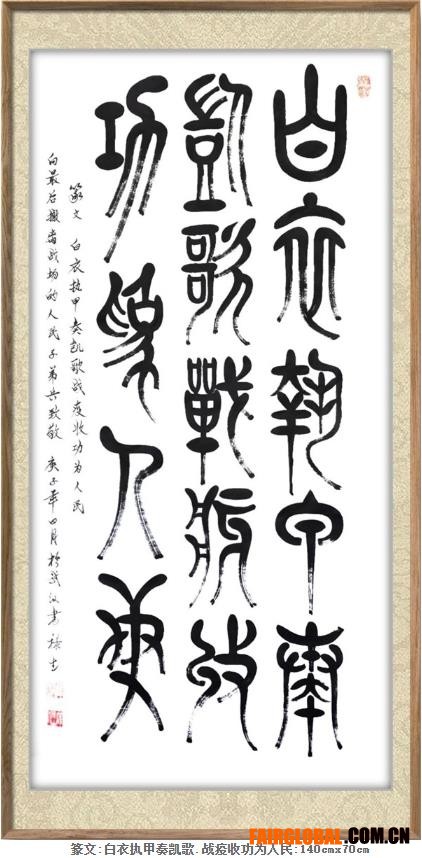 白衣執甲奏
凱歌戰疫收
功為人民
篆文 白衣执甲奏凯歌战疫收功为人民
向最后撤离战场的人民子弟兵致敬 庚子年四月於武汉书
FAIRGLOBAL.COM.CN
篆文:白衣执甲奏凯歌.战疫收功为人民:140cmx70cm